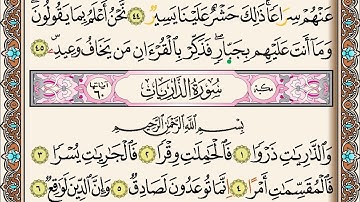 عَنْهُمْ سِرَاعًا ذَٰلِكَ حَشْرٌ عَلَيْنَا يَسِيرٌ ٤٤ نَّحْنُ أَعْلَمُ بِمَا يَقُولُونَ
وَمَا أَنتَ عَلَيْهِم بِجَبَّارٍ فَذَكِّرْ بِالْقُرْءَانِ مَن يَخَافُ وَعِيدِ ٤٥
مكية سُورَةُ الذَّارِيَاتِ آياتها ٦٠
بِسْمِ اللَّهِ الرَّحْمَٰنِ الرَّحِيمِ
وَالذَّارِيَاتِ ذَرْوًا ١ فَالْحَامِلَاتِ وِقْرًا ٢ فَالْجَارِيَاتِ يُسْرًا ٣
فَالْمُقَسِّمَاتِ أَمْرًا ٤ إِنَّمَا تُوعَدُونَ لَصَادِقٌ ٥ وَإِنَّ الدِّينَ لَوَاقِعٌ ٦